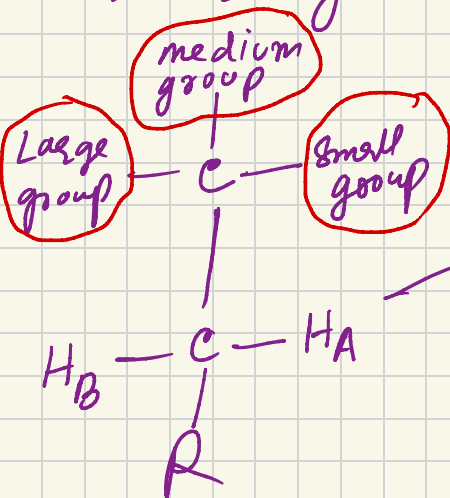 medium
group
Large
group
C
Small
group
C
HB
HA
R